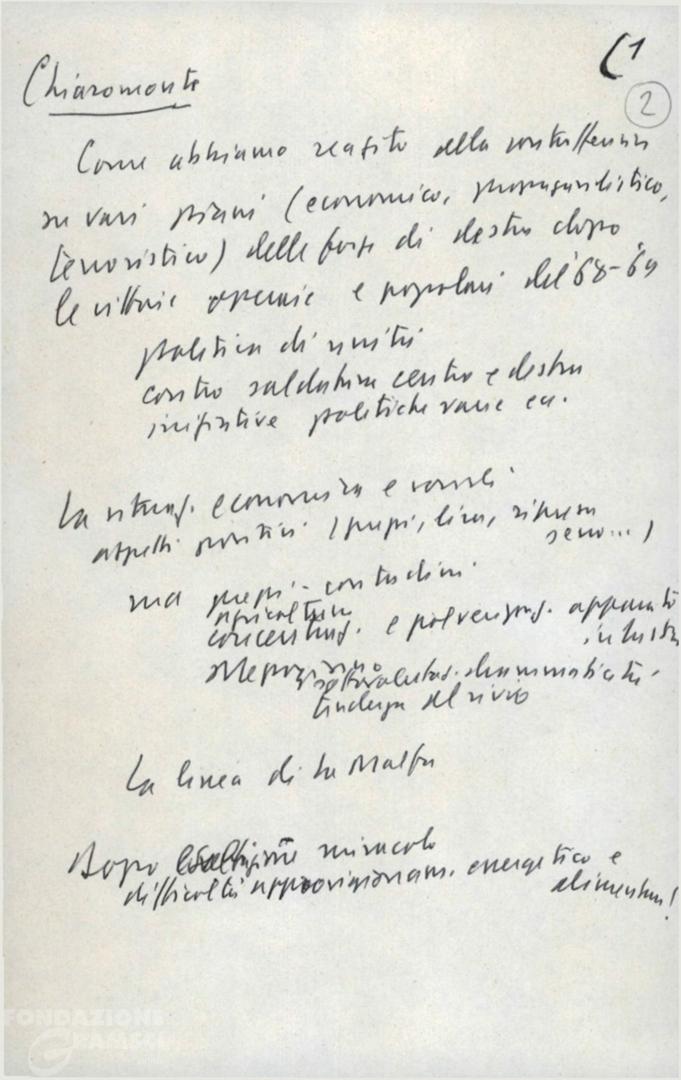 C1
2
Chiaromonte
Come abbiamo reagito alla controffensiva
su vari piani (economico, propagandistico,
terroristico) delle forze di destra dopo
le vittorie operaie e popolari del '68-'69
politica di unità
contro saldatura centro e destra
iniziative politiche varie ecc.
La situaz. economica e
aspetti positivi (prezzi, lira, ripresa
ma prezzi - contadini
agricoltura
concentraz. e polverizzaz. apparato
industr
Mezzogiorno
sottovalutaz. drammaticità
tendenza al rinvio
La linea di La Malfa
Dopo miracolo
difficoltà approvvigionam. energetico e
alimentare!
FONDAZIONE
GRAMSCI